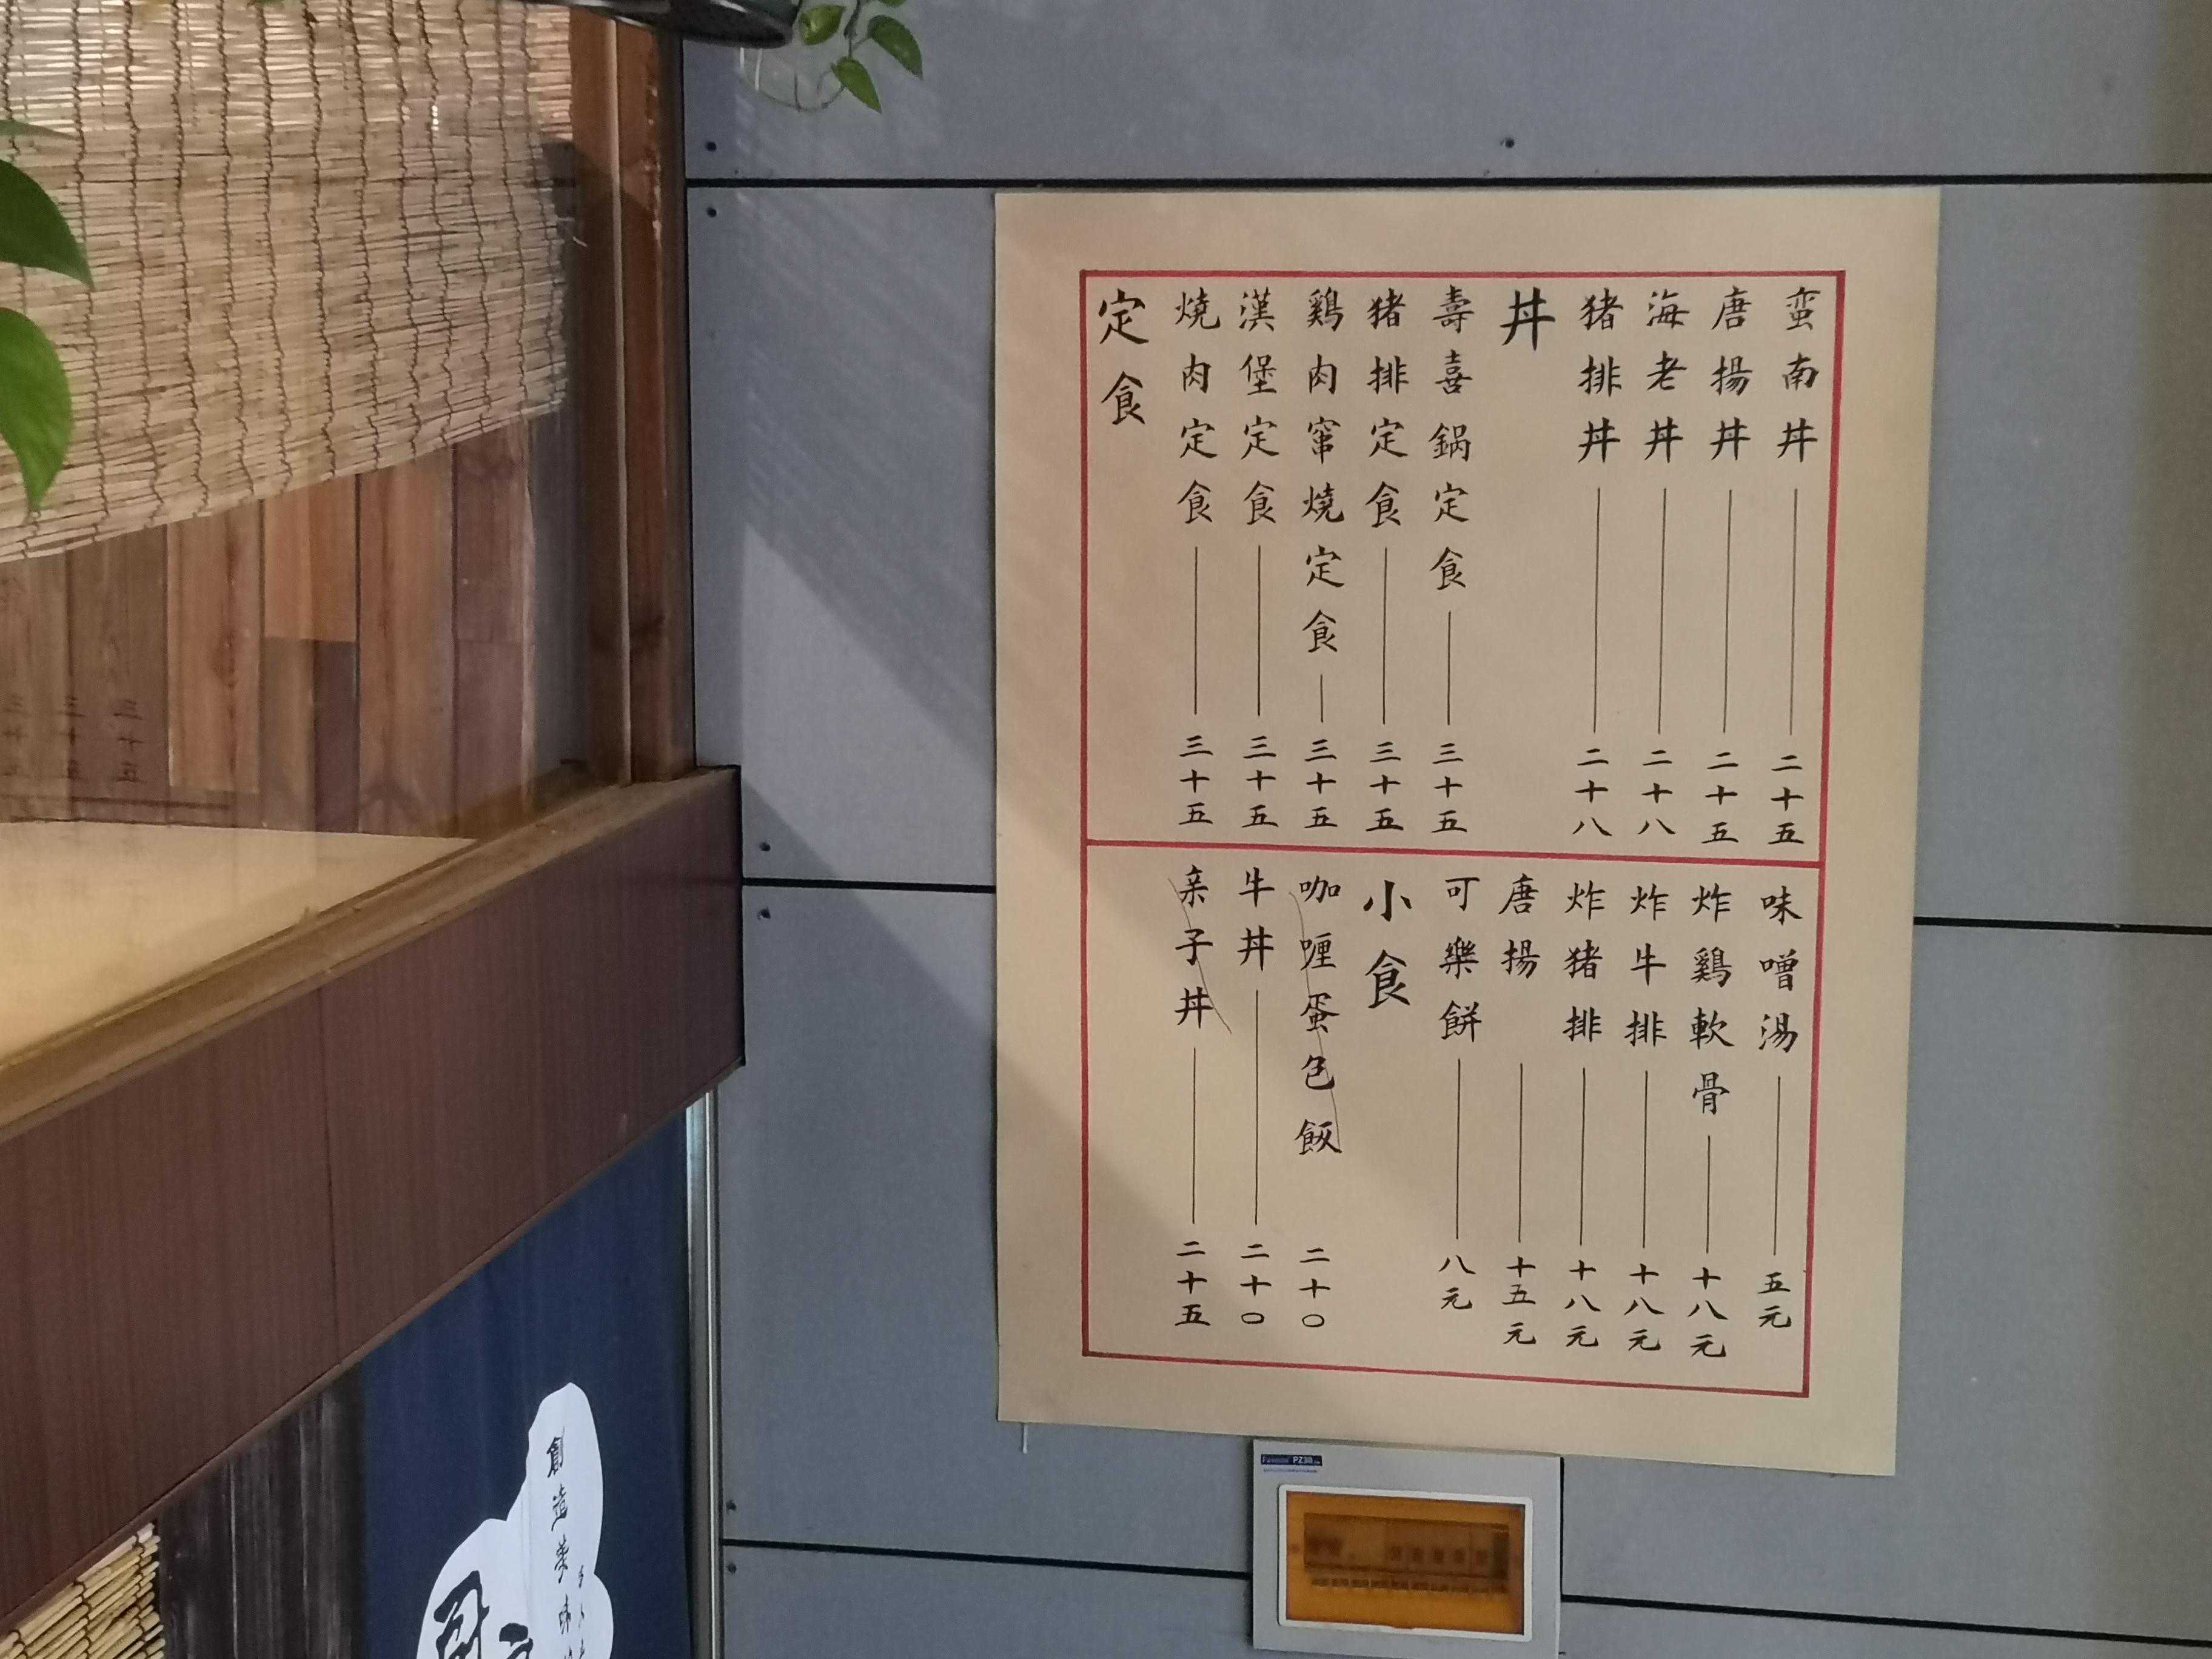 定食
燒肉定食 三十五
漢堡定食 三十五
鷄肉窜燒定食 三十五
猪排定食 三十五
壽喜鍋定食 三十五
丼
猪排丼 二十八
海老丼 二十八
唐揚丼 二十五
蛮南丼 二十五
亲子丼 二十五
牛丼 二十〇
咖喱蛋包飯 二十〇
小食
可樂餅 八元
唐揚 十五元
炸猪排 十八元
炸牛排 十八元
炸鷄軟骨 十八元
味噌湯 五元
創造美味
PZ30